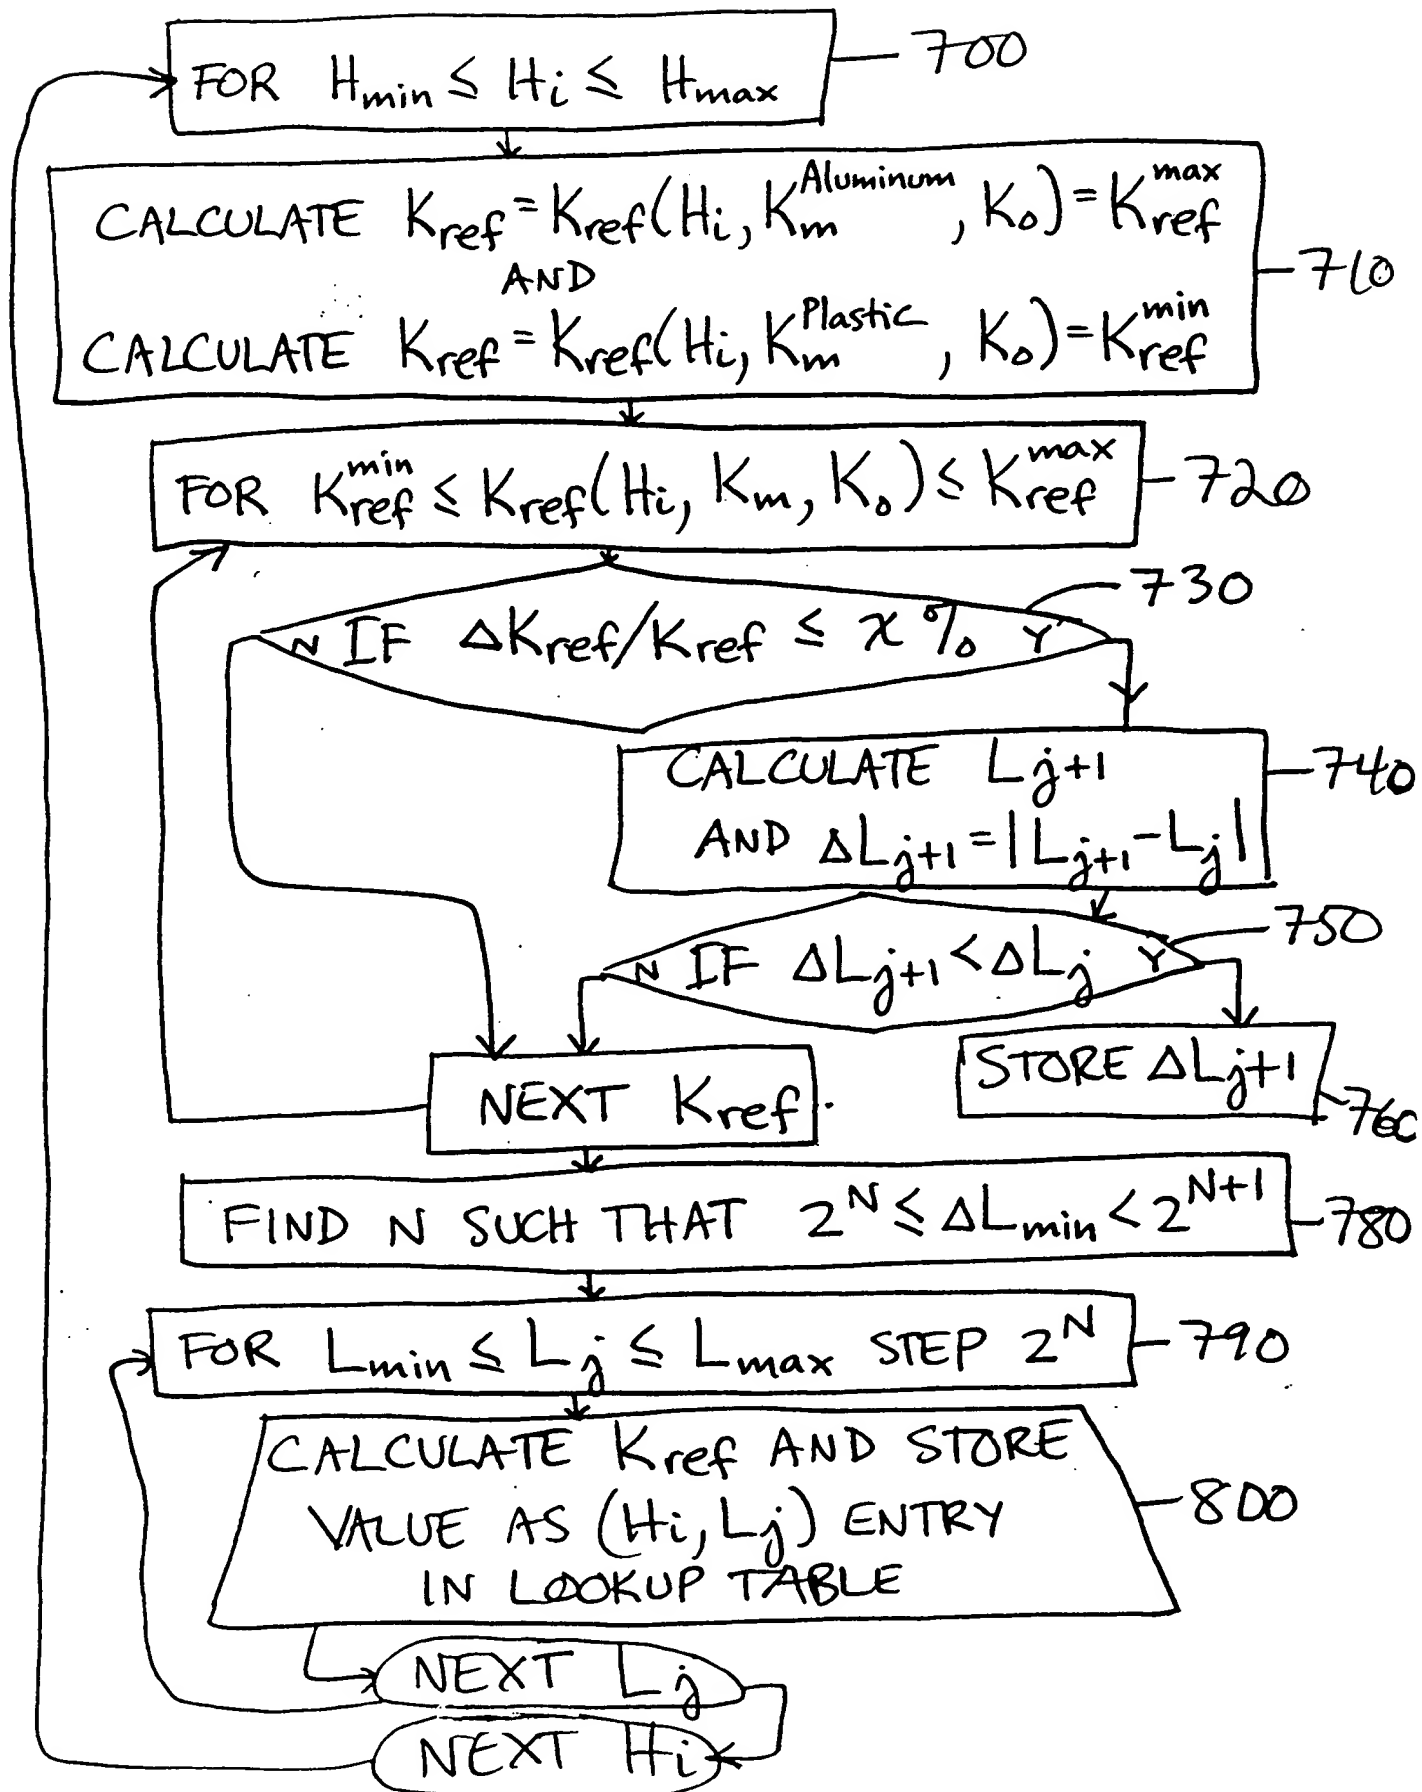 FOR H_min ≤ H_i ≤ H_max 700
CALCULATE K_ref = K_ref(H_i, K_m^Aluminum, K_o) = K_ref^max
AND 710
CALCULATE K_ref = K_ref(H_i, K_m^Plastic, K_o) = K_ref^min
FOR K_ref^min ≤ K_ref(H_i, K_m, K_o) ≤ K_ref^max 720
730
N IF ΔK_ref/K_ref ≤ x % Y
CALCULATE L_j+1 740
AND ΔL_j+1 = |L_j+1 - L_j|
750
N IF ΔL_j+1 < ΔL_j Y
STORE ΔL_j+1
NEXT K_ref 760
FIND N SUCH THAT 2^N ≤ ΔL_min < 2^N+1 780
FOR L_min ≤ L_j ≤ L_max STEP 2^N 790
CALCULATE K_ref AND STORE
VALUE AS (H_i, L_j) ENTRY 800
IN LOOKUP TABLE
NEXT L_j
NEXT H_i